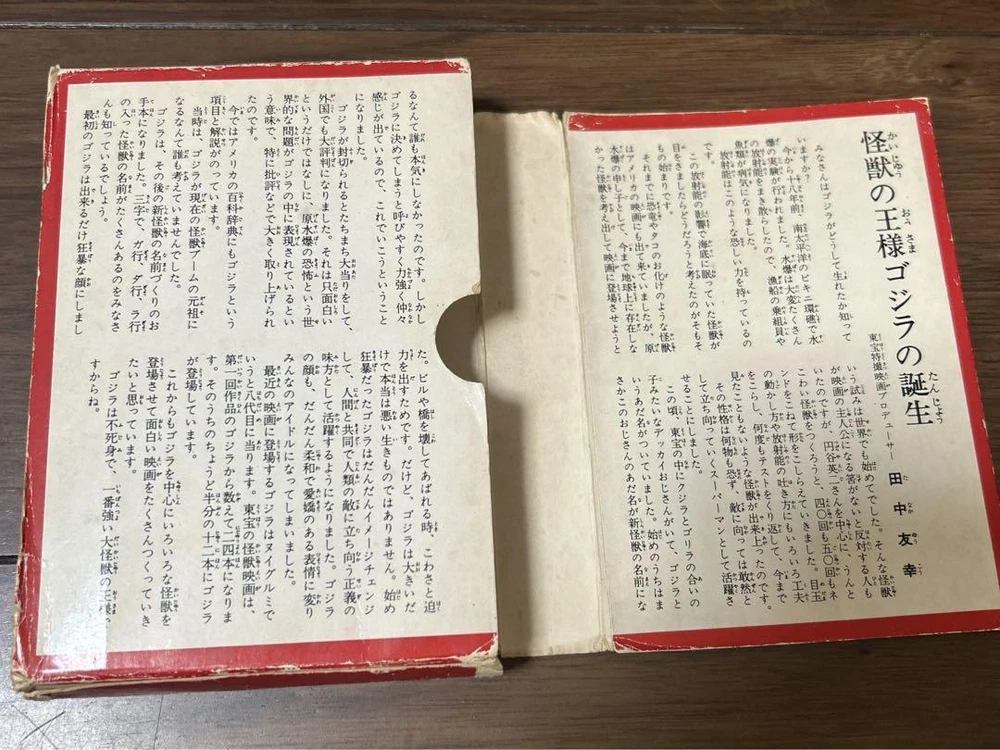 怪獣の王様ゴジラの誕生
東宝特撮映画プロデューサー 田中友幸
みなさんはゴジラがどうして生れたか知って
いますか?
今から十八年前、南太平洋のビキニ環礁で水
爆の実験が行われました。水爆は大変たくさん
の放射能をまき散らしたので、漁船の乗組員や
魚類が病気になりました。
放射能はこのような恐しい力を持っているの
です。
この放射能の影響で海底に眠っていた怪獣が
目をさましたらどうだろうと考えたのがそもそ
もの始まりです。
それまでに恐竜やタコのお化けのような怪獣
はアメリカの映画にも出て来ていましたが、原
水爆の申し子として、今まで地球上に存在しな
かった怪獣を考え出して映画に登場させようと
いう試みは世界でも始めてでした。そんな怪獣
が映画の主人公になる筈がないと反対する人も
いたのですが、円谷英二さんを中心に、うんと
こわい怪獣をつくろうと、四〇回も五〇回もネ
ンドをこねて形をこしらえていきました。目玉
の動かし方や放射能の吐き方にもいろいろ工夫
をこらし、何度もテストをくり返して、今まで
見たこともないような怪獣が出来上ったのです。
その性格は何物も恐ず、敵に向っては敢然と
して立ち向っていくスーパーマンとして活躍さ
せることにしました。
この頃、東宝の中にクジラとゴリラの合いの
子みたいなデッカイおじさんがいて、ゴジラと
いうあだ名がついていました。始めのうちはま
さかこのおじさんのあだ名が新怪獣の名前にな
るなんて誰も本気にしなかったのです。しかし
ゴジラに決めてしまうと呼びやすく力強く仲々
感じが出ているので、これでいこうということ
になりました。
ゴジラが封切られるとたちまち大当りをして、
外国でも大評判になりました。それは只面白い
というだけではなしに、原水爆の恐怖という世
界的な問題がゴジラの中に表現されているとい
う意味で、特に批評などで大きく取り上げられ
たのです。
今ではアメリカの百科辞典にもゴジラという
項目と解説がのっています。
当時は、ゴジラが現在の怪獣ブームの元祖に
なるなんて誰も考えていませんでした。
ゴジラは、その後の新怪獣の名前づくりのお
手本になりました。三字で、ガ行、ダ行、ラ行
の入った怪獣の名前がたくさんあるのをみなさ
んも知っているでしょう。
最初のゴジラは出来るだけ狂暴な顔にしまし
た。ビルや橋を壊してあばれる時、こわさと迫
力を出すためです。だけど、ゴジラは大きいだ
けで本当は悪い生きものではありません。始め
狂暴だったゴジラはだんだんイメージチェンジ
して、人間と共同で人類の敵に立ち向う正義の
味方として活躍するようになりました。ゴジラ
の顔も、だんだん柔和で愛嬌のある表情に変り
みんなのアイドルになってしまいました。
最近の映画に登場するゴジラはヌイグルミで
いうと八代目に当ります。東宝の怪獣映画は、
第一回作品のゴジラから数えて二四本になりま
す。そのうちのちょうど半分の十二本にゴジラ
が登場しています。
これからもゴジラを中心にいろいろな怪獣を
登場させて面白い映画をたくさんつくっていき
たいと思っています。
ゴジラは不死身で、一番強い大怪獣の王様で
すからね。